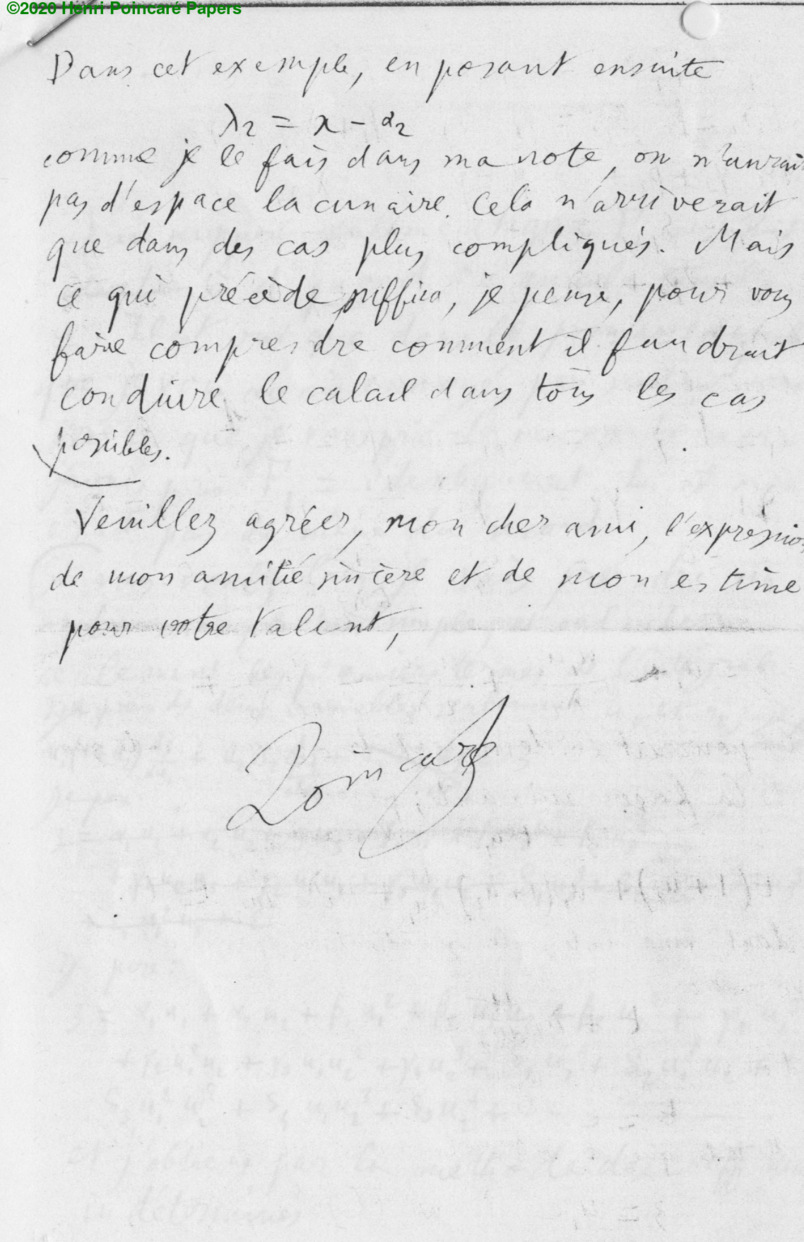 ©2020 Henri Poincaré Papers
Dans cet exemple, en posant ensuite
λ₂ = x − α₂
comme je le fais dans ma note, on n'aurait
pas d'espace lacunaire. Cela n'arriverait
que dans des cas plus compliqués. Mais
ce qui précède suffira, je pense, pour vous
faire comprendre comment il faudrait
conduire le calcul dans tous les cas
possibles.
Veuillez agréer, mon cher ami, l'expression
de mon amitié sincère et de mon estime
pour votre talent,
Poincaré